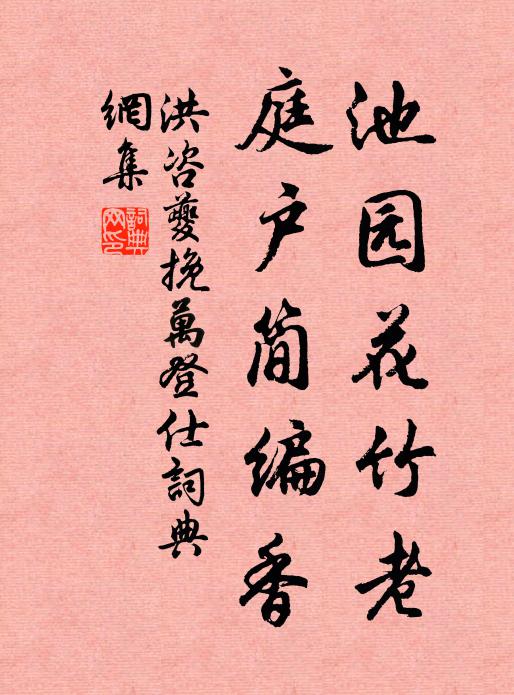 池园花竹老
庭户简编香
洪咨夔挽萬登仕詞典
網集
詞典
网印